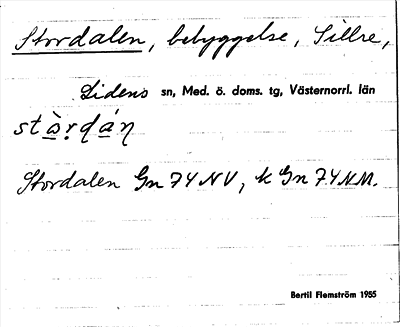 Stordalen, bebyggelse, Sillre,
Lidens sn, Med. ö. doms. tg, Västernorrl. län
stòṛɖán
Stordalen Gn 74 NV, k Gn 74 NM.
Bertil Flemström 1955